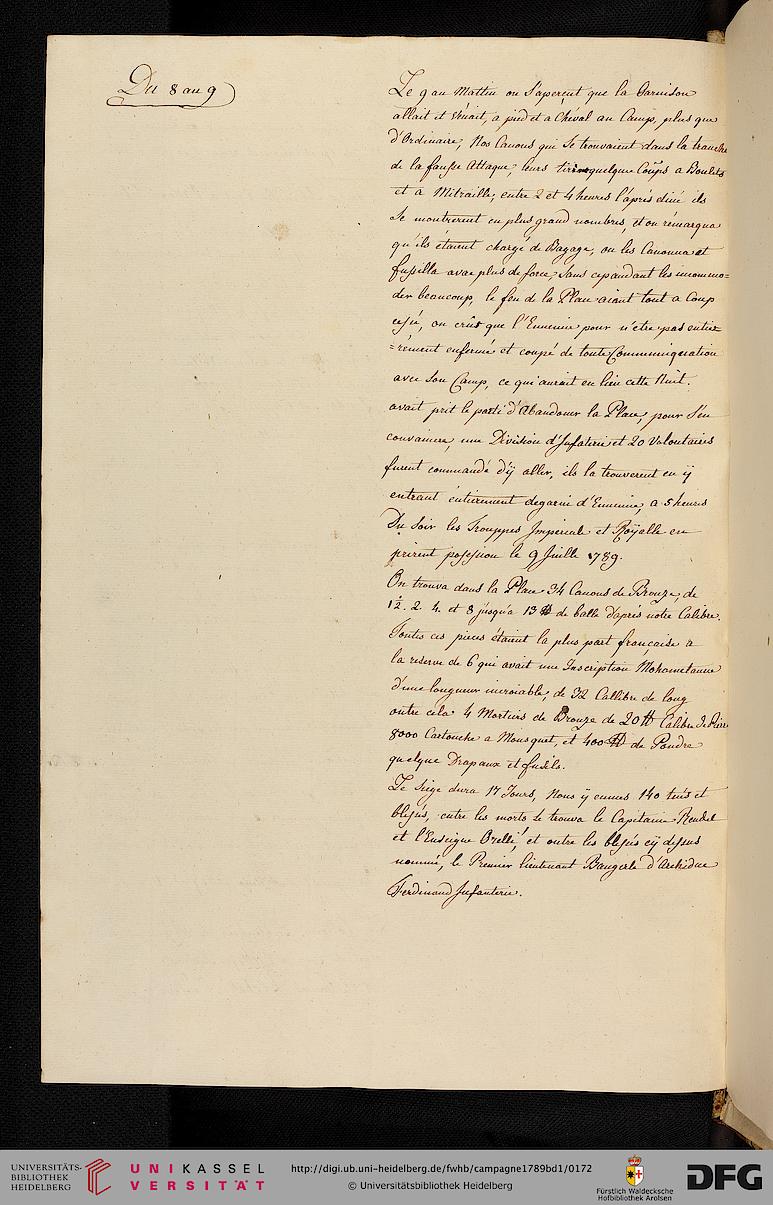 Du 8 au 9
Le 9 au Mattin on s'aperçut que la Garnison
allait et vénait, a pied et a Chéval au Camp, plus que
d'Ordinaire, Nos Canons qui se trouvaient dans la tranchée
de la fausse Attaque, leurs quelque Coups a Boulets
et a Mitraille; entre 2 et 4 heures l'après diné ils
se montrerent en plus grand nombres, et on rémarqua
qu'ils étaient chargé de Bagage, on les Canonna et
fusilla avec plus de force, sans cepandant les incommo=
der beaucoup, le feu de la Place aiant tout a Coup
cessé, on crût que l'Ennemie pour n'etre pas entie=
=rement enfermé et coupé de toute Communiquation
avec son Camp, ce qui aurait eu lieu cette Nuit.
avait prit le parti d'Abandonner la Place, pour s'en
convaincre, une Division d'Infaterie et 20 Volontaires
furent commandé d'ÿ aller, ils la trouverent en ÿ
entrant entierement degarni d'Ennemie, a 5 heures
Du Soir les Trouppes Imperiale et Roÿalle en
prirent possession le 9 Juille 1789.
On trouva dans la Place 34 Canons de Bronze, de
1½. 2. 4. et 8 jusqu'a 13 ℔ de balle d'après notre Calibre.
Toutes ces pieces étaient la plus part française a
la reserve de 6 qui avait une Inscription Mahometanne
d'une longueur incroiable, de 32 Callibre de long
outre cela 4 Mortiers de Bronze de 20 ℔ Calibre de Pierre
8000 Cartouche a Mousquet, et 400 ℔ de Poudre
quelque Drapaux et fusils.
Le Siege dura 17 Jours, Nous ÿ eumes 140 tués et
blessés, entre les morts se trouva le Capitaine Rendel
et l'Enseigne Brelli, et outre les blessés cÿ dessus
nommé, le Premier lieutenant Baugerle d'Archiduc
Ferdinand Infanterie.
UNIVERSITÄTS-
BIBLIOTHEK
HEIDELBERG
UNIKASSEL
VERSITÄT
http://digi.ub.uni-heidelberg.de/fwhb/campagne1789bd1/0172
© Universitätsbibliothek Heidelberg
Fürstlich Waldecksche
Hofbibliothek Arolsen
DFG